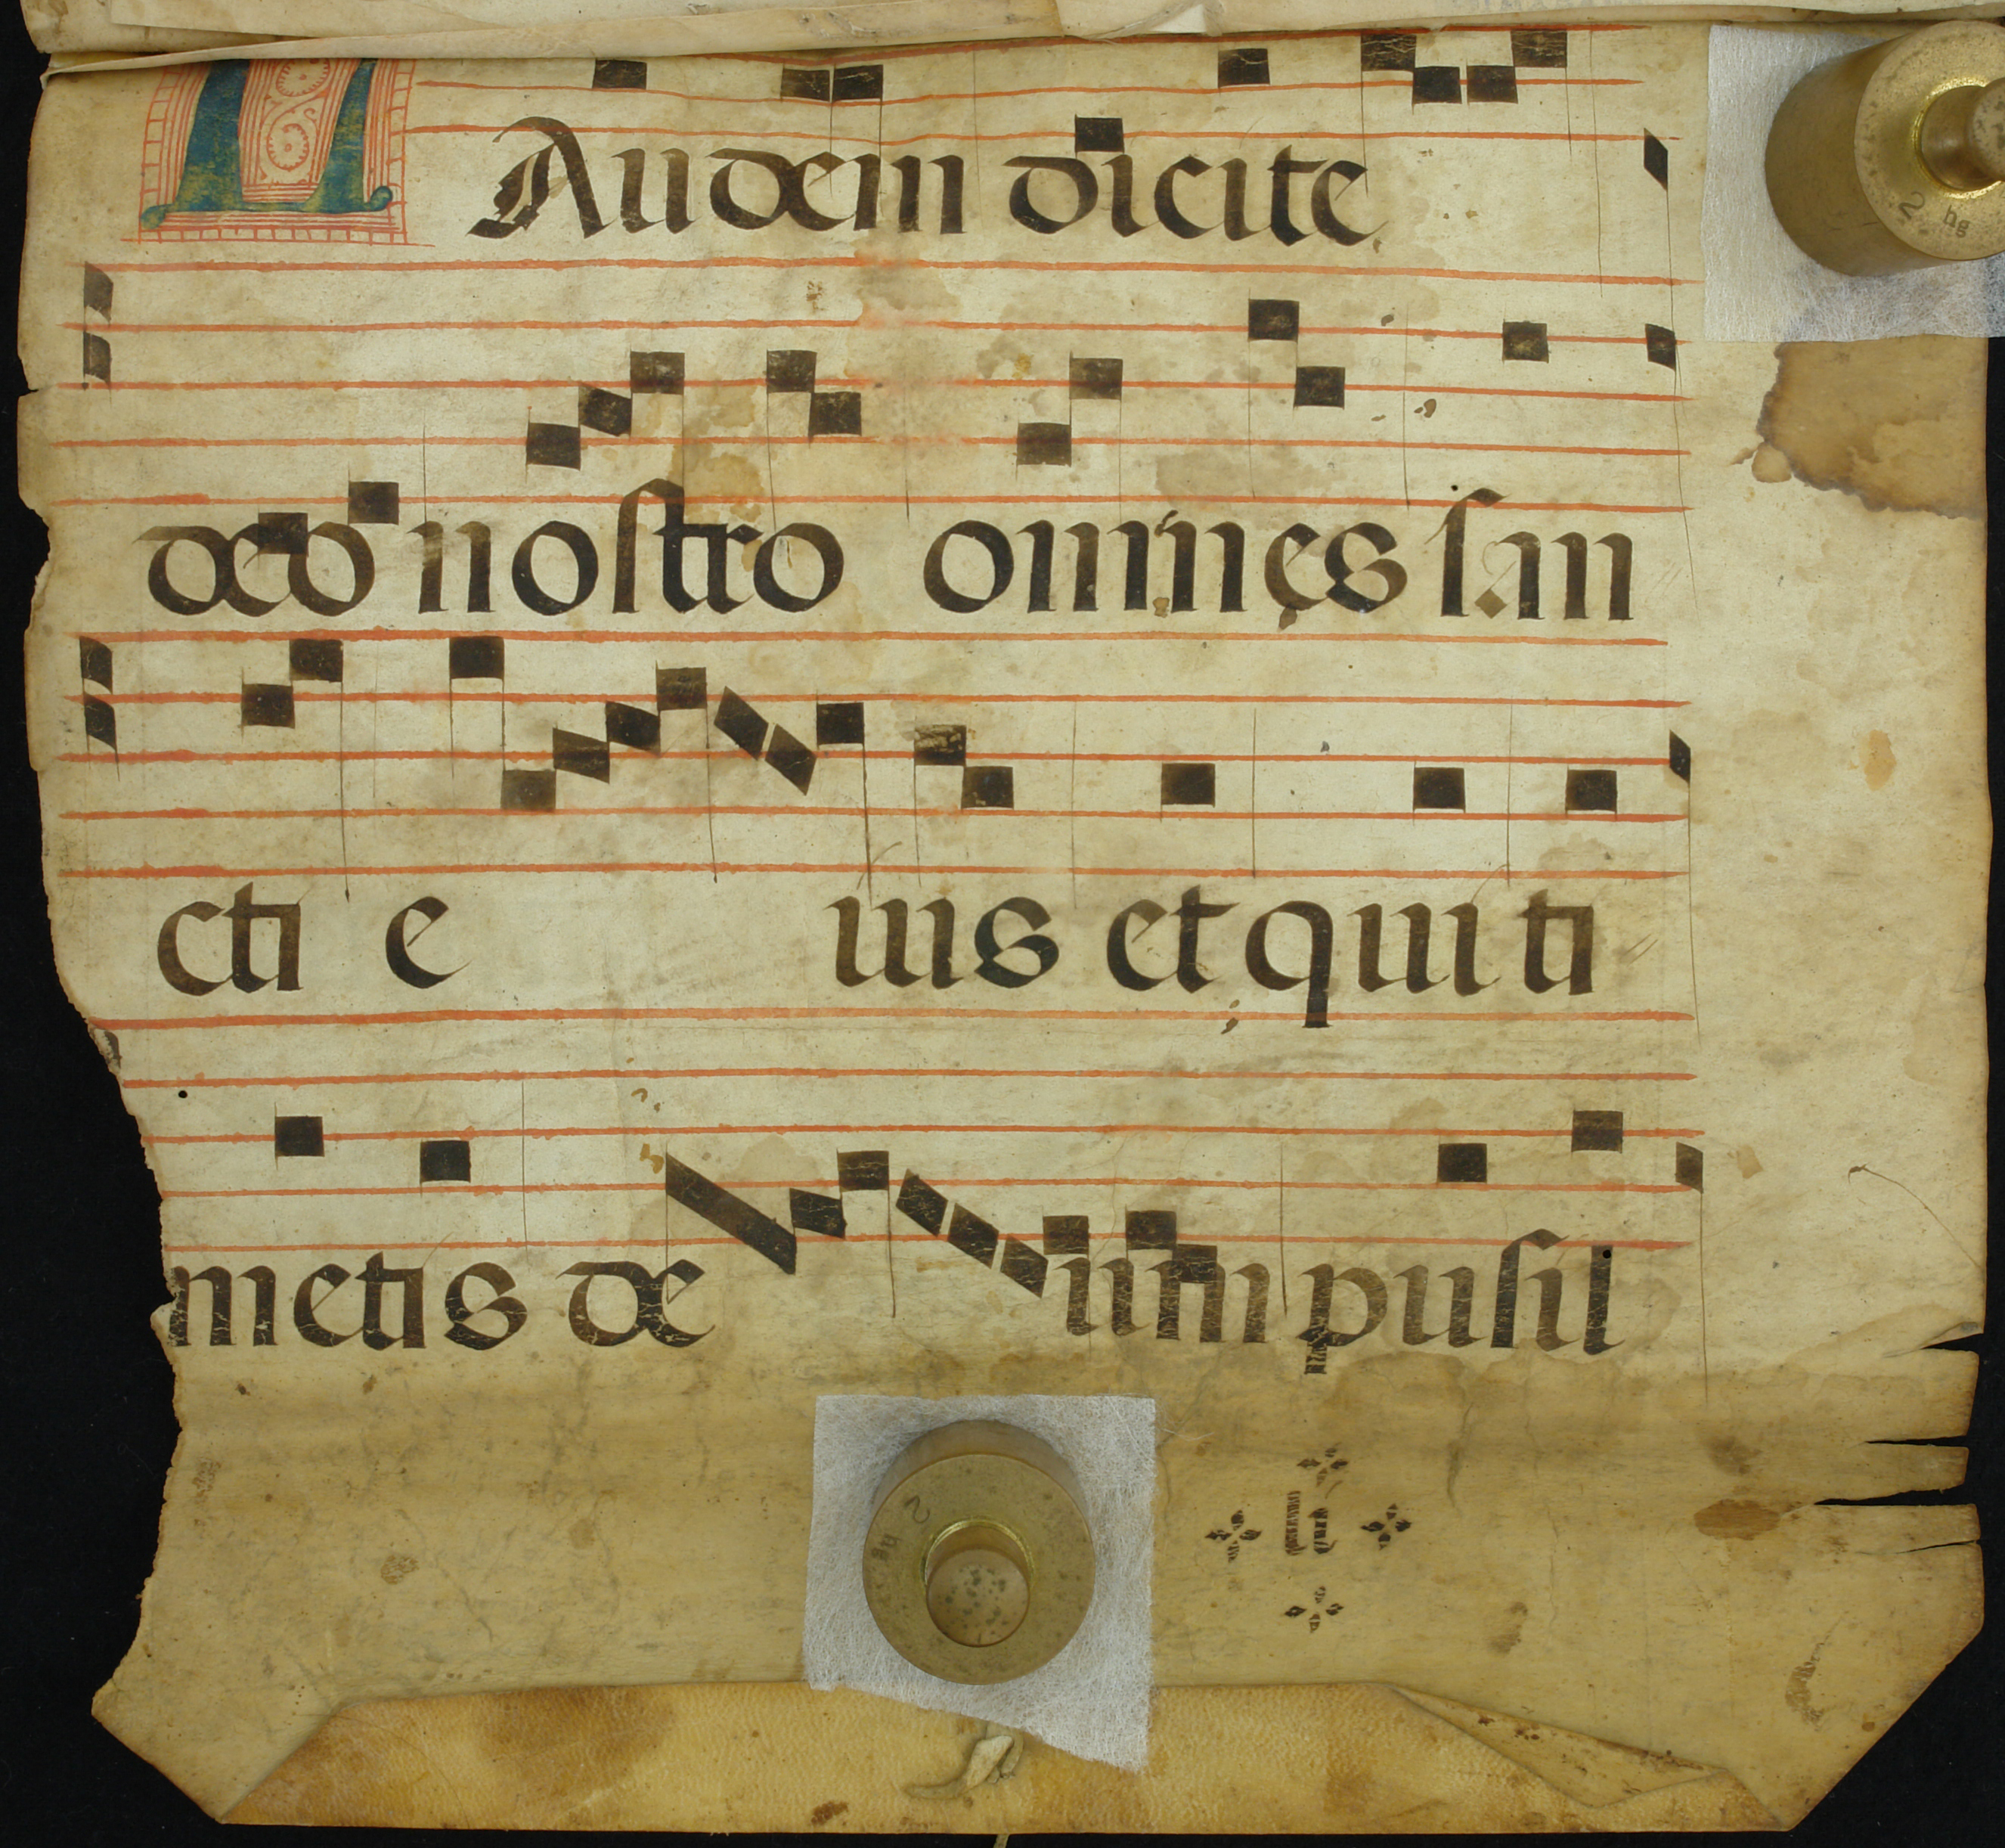 LAudem dicite
deo nostro omnes san
cti e ius et qui ti
metis de um pusil
2 hg
2 hg